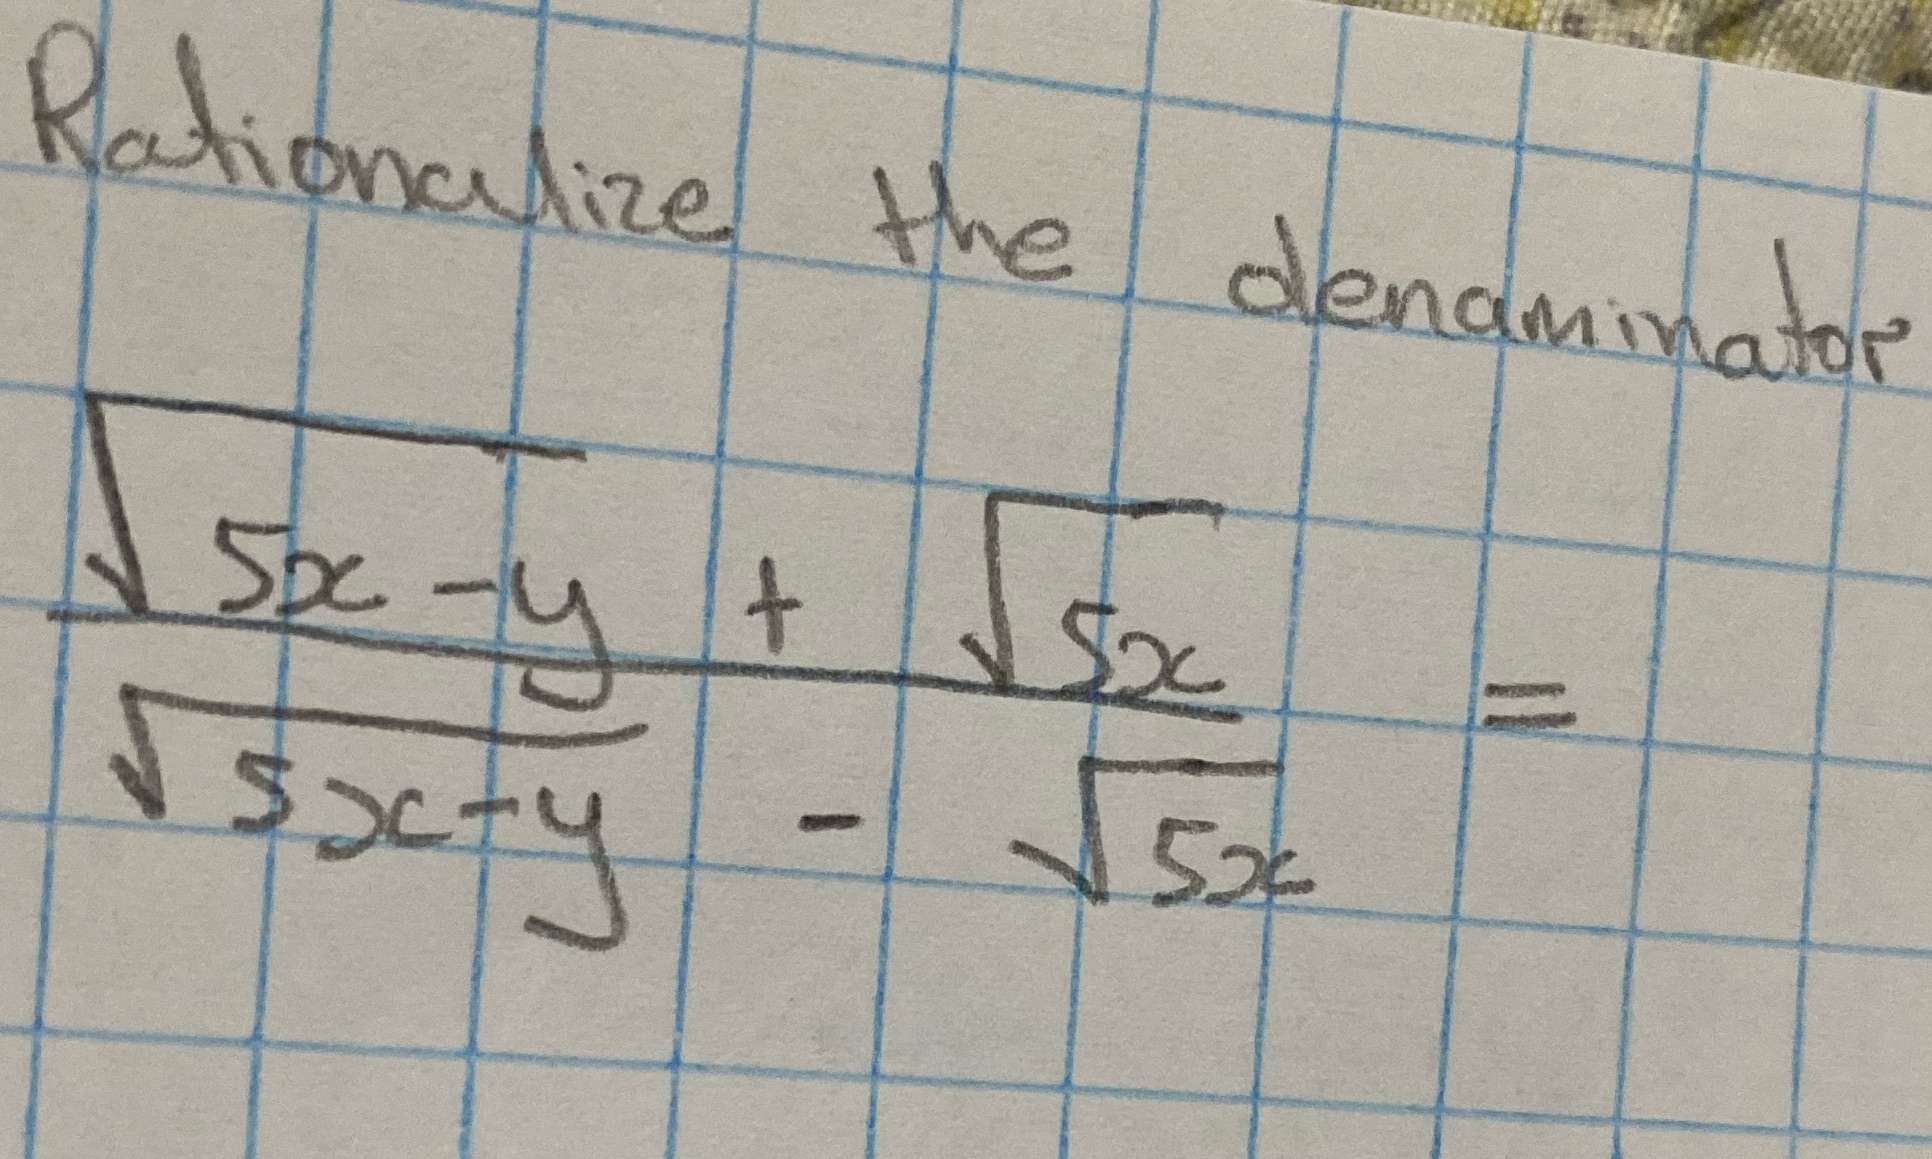 Rationalize the denaminator
√(5x-y) + √(5x)
√(5x-y) - √(5x) =